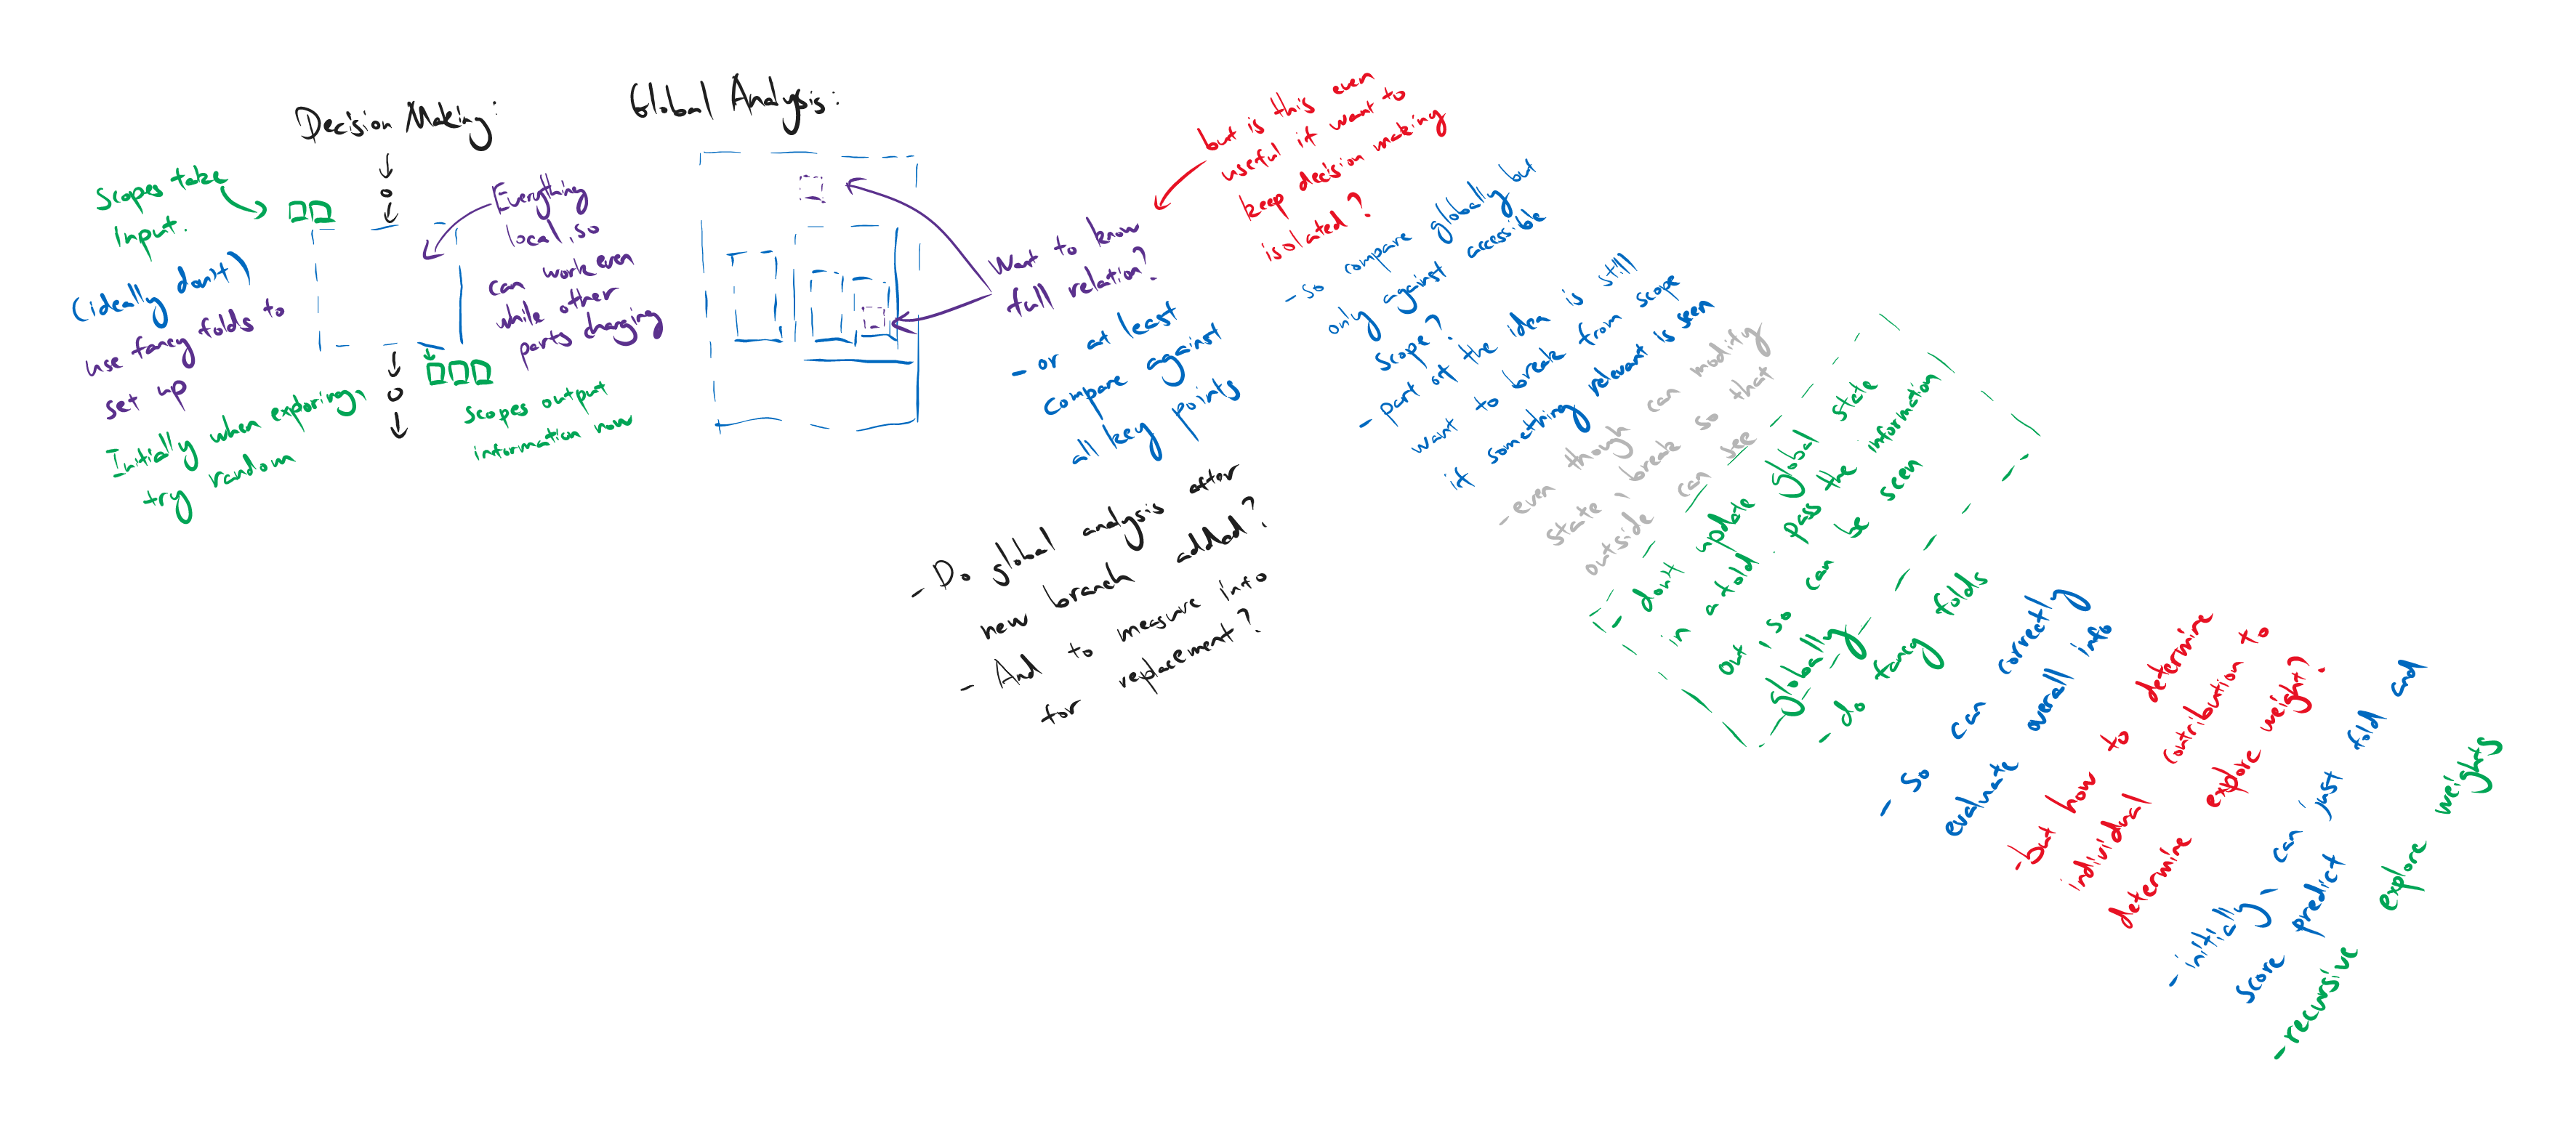 Decision Making:
Scopes take
input.
(ideally don't)
use fancy folds to
set up
Initially when exploring,
try random
Everything
local, so
can work even
while other
parts changing
Scopes output
information now
Global Analysis:
Want to know
full relation?
- or at least
compare against
all key points
- Do global analysis after
new branch added?
- And to measure info
for replacement?
but is this even
useful if want to
keep decision making
isolated?
- so compare globally but
only against accessible
scope?
- part of the idea is still
want to break from scope
if something relevant is seen
- even though can modify
state, break so that
outside can see
- don't update global state
in a fold, pass the information
out, so can be seen
globally
- do fancy folds
- so can correctly
evaluate overall info
- but how to determine
individual contribution to
determine explore weight?
- initially, can just fold and
score predict
- recursive explore weights